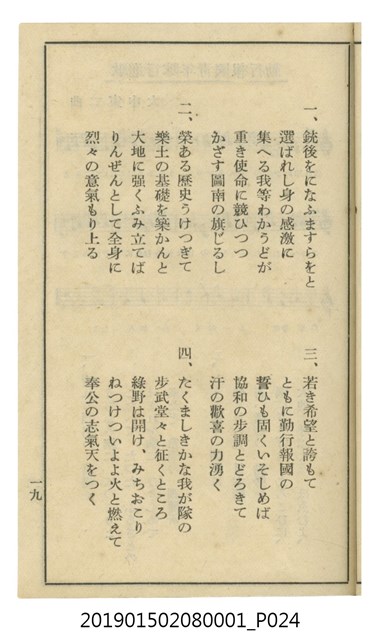 一、銃後をになふますらをと
選ばれし身の感激に
集へる我等わかうどが
重き使命に競ひつつ
かざす圖南の旗じるし
二、榮ある歷史うけつぎて
樂土の基礎を築かんと
大地に強くふみ立てば
りんぜんとして全身に
烈々の意氣もり上る
三、若き希望と誇もて
ともに勤行報國の
誓ひも固くいそしめば
協和の步調とどろきて
汗の歡喜の力湧く
四、たくましきかな我が隊の
步武堂々と征くところ
綠野は開け、みちおこり
ねつけついよよ火と燃えて
奉公の志氣天をつく
一九
201901502080001_P024